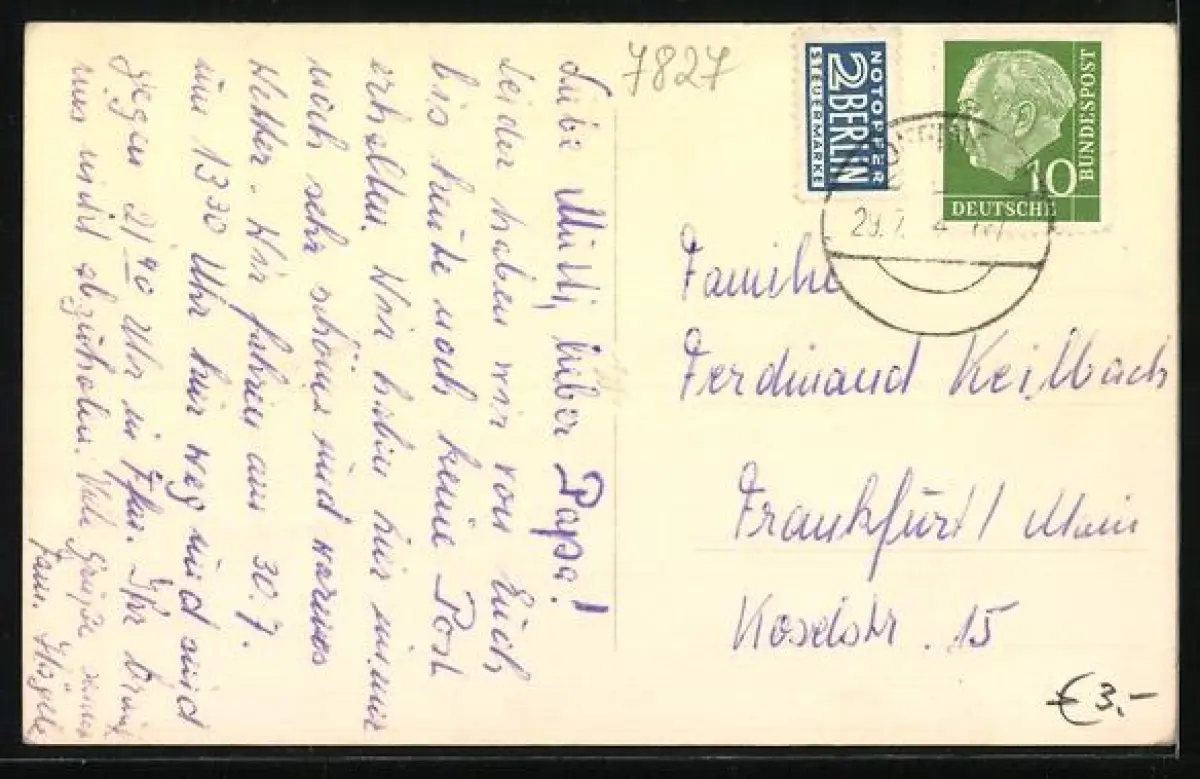 7827
NOTOPFER
2 BERLIN
STEUERMARKE
10
BUNDESPOST
DEUTSCHE
29.7.
Familie
Ferdinand Keilbach
Frankfurt/Main
Koselstr. 15
Liebe Mutti, lieber Papa!
Leider haben wir von Euch
bis heute noch keine Post
erhalten. Wir haben hier immer
noch sehr schönes und warmes
Wetter. Wir fahren am 30.7.
um 13 30 Uhr hier weg und sind
gegen 21 40 Uhr in Ffm. Ihr braucht
uns nicht abzuholen. Viele Grüße
Fam.
€ 3.-